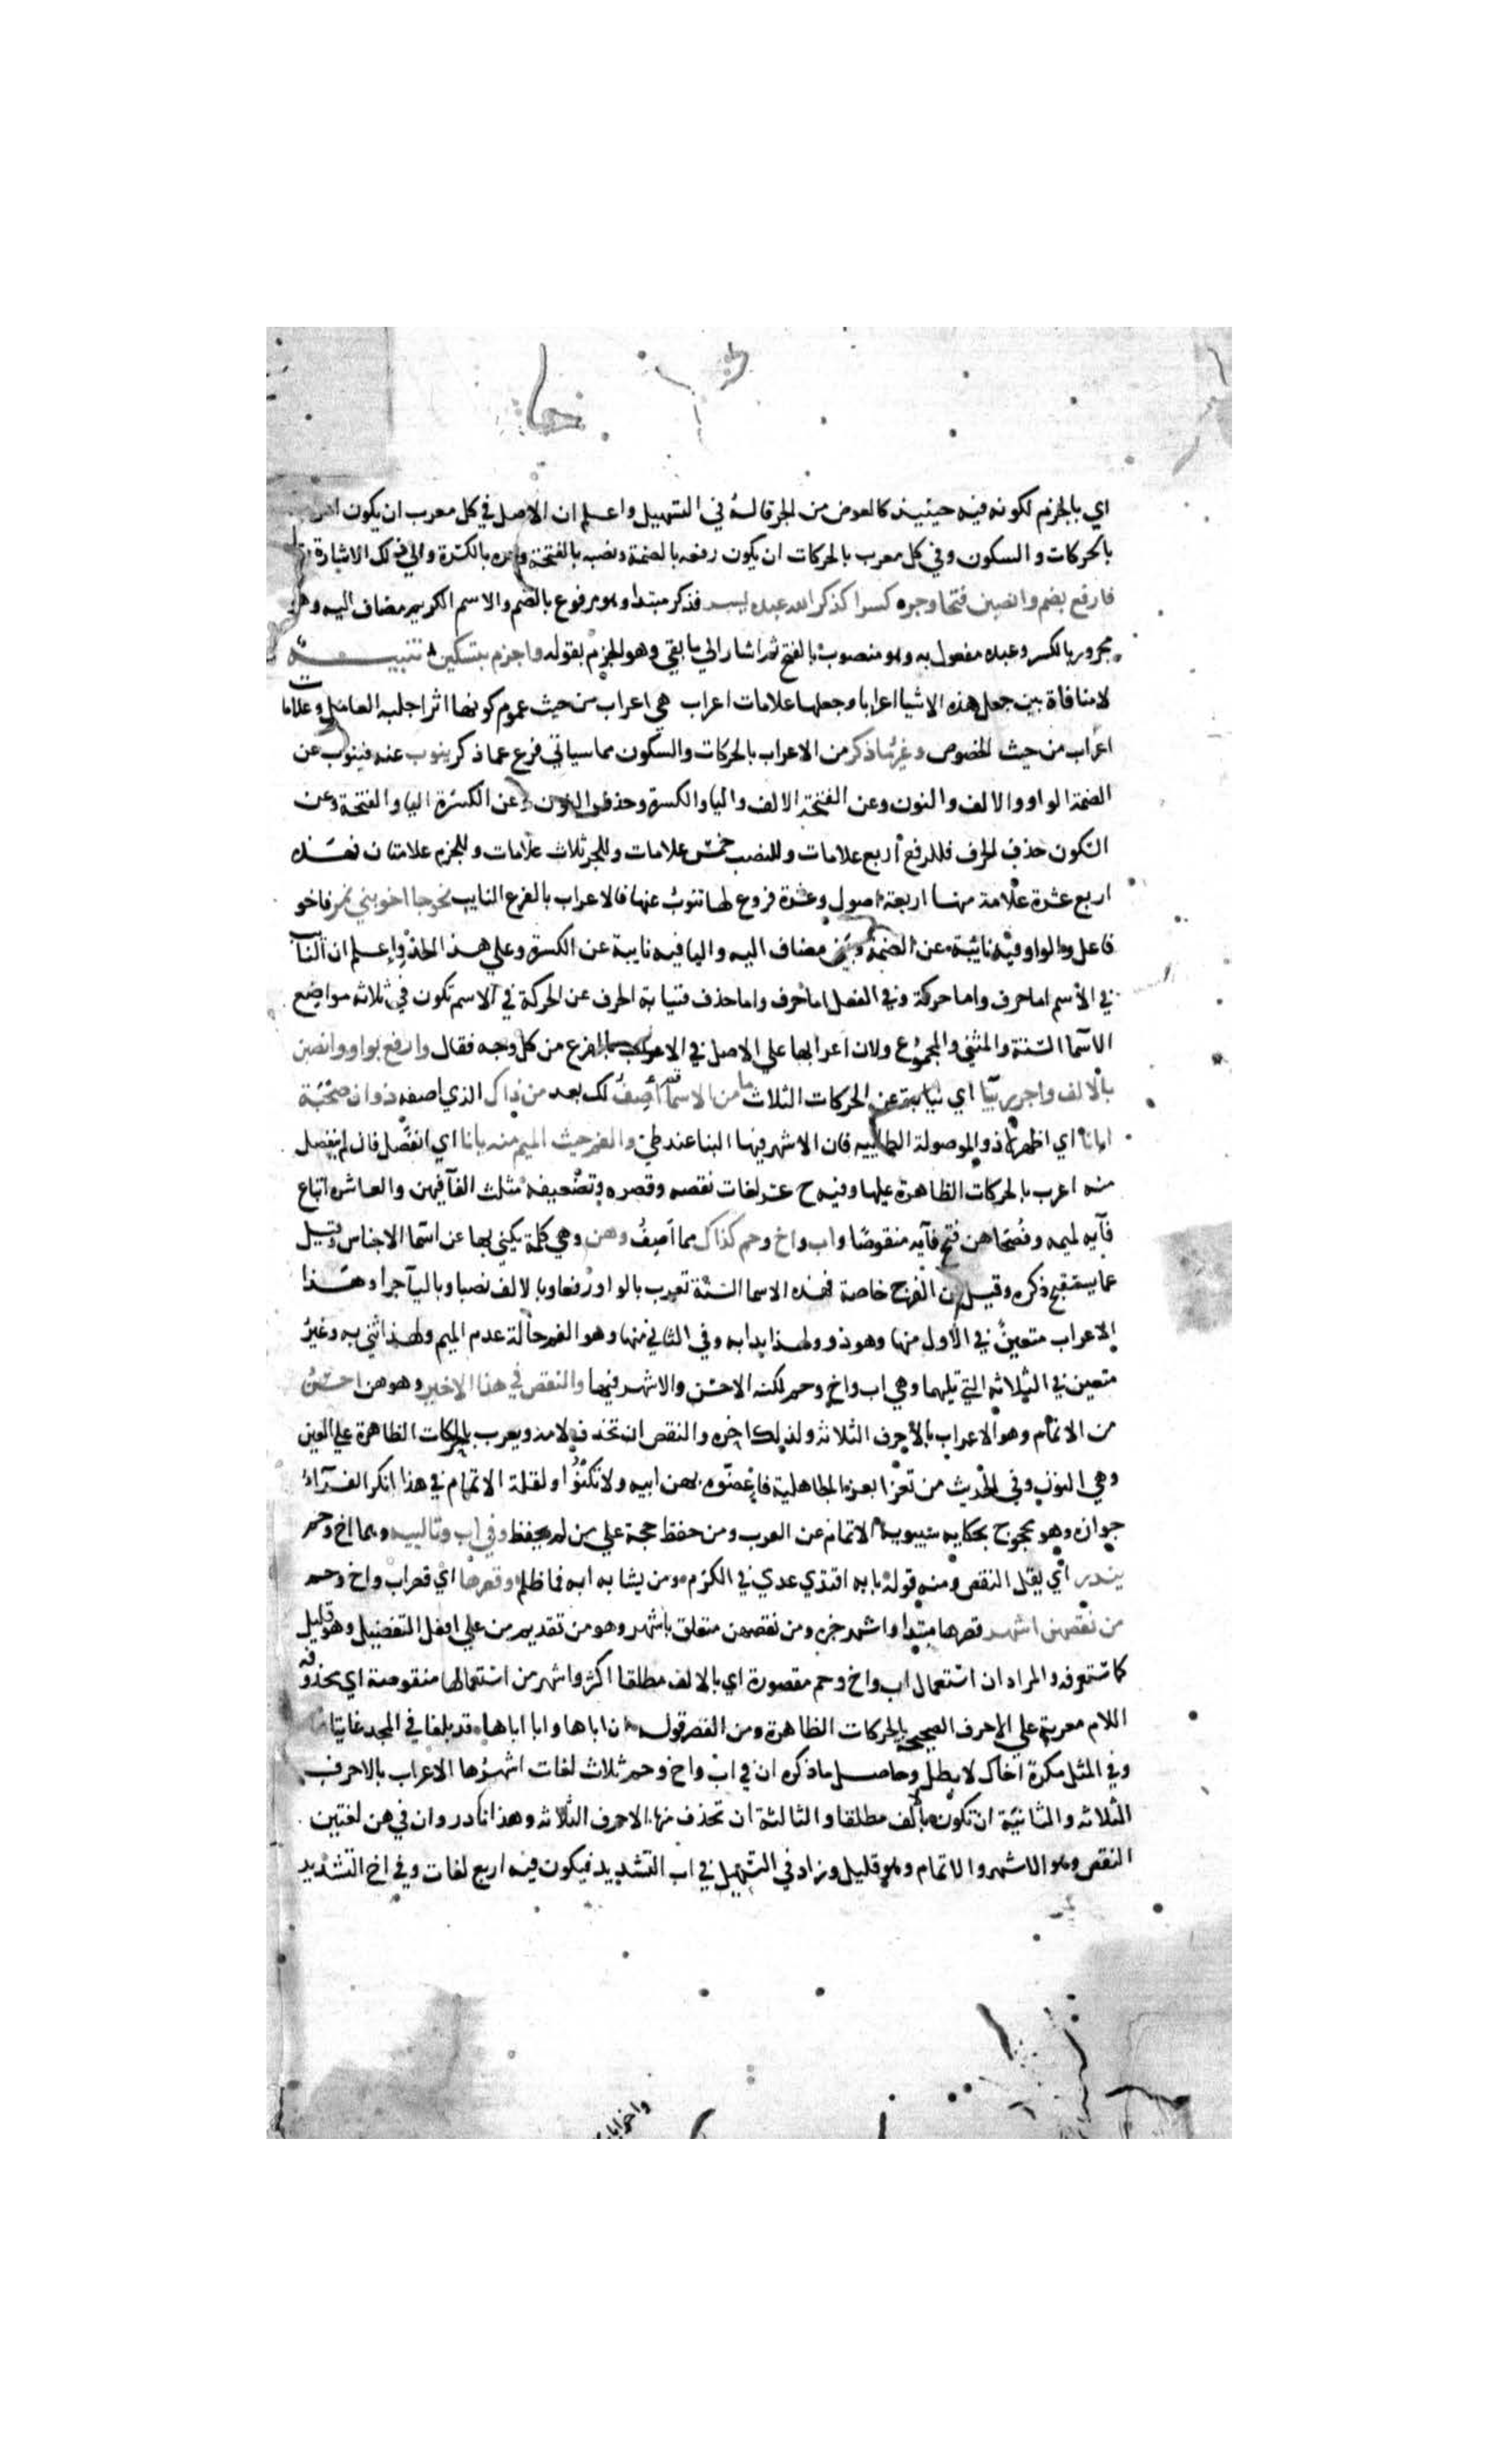 اي بالجزم لكونه فيه حينيذ كالعوض من الجر قاله في التسهيل واعلم ان الاصل في كل معرب ان يكون اعرابه
بالحركات والسكون وفي كل معرب بالحركات ان يكون رفعه بالضمة ونصبه بالفتحة وجره بالكسرة والي ذلك الاشارة
فارفع بضم وانصبن فتحا وجره كسرا كذكر الله عبده يسر فذكر مبتدا وهو مرفوع بالضم والاسم الكريم مضاف اليه وهو
مجرور بالكسر وعبده مفعول به وهو منصوب بالفتح ثم اشار الي ما بقي وهو الجزم بقوله واجزم بتسكين تنبيه
لا منافاة بين جعل هذه الاشيا اعرابا وجعلها علامات اعراب هي اعراب من حيث عموم كونها اثرا جلبه العامل وعلامات
اعراب من حيث الخصوص وغير ما ذكر من الاعراب بالحركات والسكون مما سياتي فرع عما ذكر ينوب عنه فينوب عن
الضمة الواو والالف والنون وعن الفتحة الالف واليا والكسرة وحذف النون وعن الكسرة اليا والفتحة وعن
السكون حذف الحرف فللرفع اربع علامات وللنصب خمس علامات وللجر ثلاث علامات وللجزم علامتان فهذه
اربع عشرة علامة منها اربعة اصول وعشرة فروع لها تنوب عنها فالاعراب بالفرع النايب نحو جا اخو بني نمر فاخو
فاعل والواو فيه نائبة عن الضمة وبني مضاف اليه واليا فيه نايبة عن الكسرة وعلي هذا الحذو واعلم ان النايب
في الاسم اما حرف واما حركة وفي الفعل اما حرف واما حذف فنيابة الحرف عن الحركة في الاسم تكون في ثلاثه مواضع
الاسما الستة والمثني والمجموع ولان اعرابها علي الاصل في الاعراب بالفرع من كل وجه فقال وارفع بواو وانصبن
بالالف واجرر بيا اي نيابة عن الحركات الثلاث ما من الاسما أصِفُ لك بعد من ذاك الذي اصفه ذو ان صحبة
ابانا اي اظهر لا ذو الموصولة الطاييه فان الاشهر فيها البنا عند طي والفم حيث الميم منه بانا اي انفصل فان لم ينفصل
منه اعرب بالحركات الظاهرة عليها وفيه ح عشر لغات نقصه وقصره وتضعيفه مثلث الفا فيهن والعاشره اتباع
فآيه لميمه وفصحاهن فتح فآيه منقوصا واب واخ وحم كذاك مما أصِفُ وهن وهي كلمة يكني بها عن اسما الاجناس وقيل
عما يستقبح ذكره وقيل عن الفرج خاصة فهذه الاسما الستة تعرب بالواو رفعا وبالالف نصبا وباليآ جرا وهذا
الاعراب متعين في الاول منها وهو ذو ولهذا بدا به وفي الثاني منها وهو الفم حالة عدم الميم ولهذا ثني به وغير
متعين في الثلاثه التي تليهما وهي اب واخ وحم لكنه الاحسن والاشهر فيها والنقص في هذا الاخير وهو هن احسن
من الاتمام وهو الاعراب بالاحرف الثلاثة ولذلك اخره والنقص ان تحذف لامه ويعرب بالحركات الظاهرة علي العين
وهي النون وفي الحديث من تعزا بعزاء الجاهلية فاعضوه بهن ابيه ولا تكنوا ولقلة الاتمام في هذا انكر الفرآء
جوازه وهو محجوج بحكايه سيبويه الاتمام عن العرب ومن حفظ حجة علي من لم يحفظ وفي اب وتالييه وهما اخ وحم
يندر اي يقل النقص ومنه قوله بابه اقتدي عدي في الكرم ومن يشابه ابه فما ظلم وقصرها اي قصر اب واخ وحم
من نقصهن اشهر قصرها مبتدا واشهر خبره ومن نقصهن متعلق باشهر وهو من تقديم من علي افعل التفضيل وهو قليل
كما ستعرفه والمراد ان استعمال اب واخ وحم مقصورة اي بالالف مطلقا اكثر واشهر من استعمالها منقوصة اي محذوفه
اللام معربة علي الاحرف الصحيحة بالحركات الظاهرة ومن القصر قوله ان اباها وابا اباها قد بلغا في المجد غايتاها
وفي المثل مكره اخاك لا بطل وحاصل ما ذكره ان في اب واخ وحم ثلاث لغات اشهرها الاعراب بالاحرف
الثلاثه والثانية ان تكون بألف مطلقا والثالثة ان تحذف منها الاحرف الثلاثه وهذا نادر وان في هن لغتين
النقص وهو الاشهر والاتمام وهو قليل وزاد في التسهيل في اب التشديد فيكون فيه اربع لغات وفي اخ التشديد